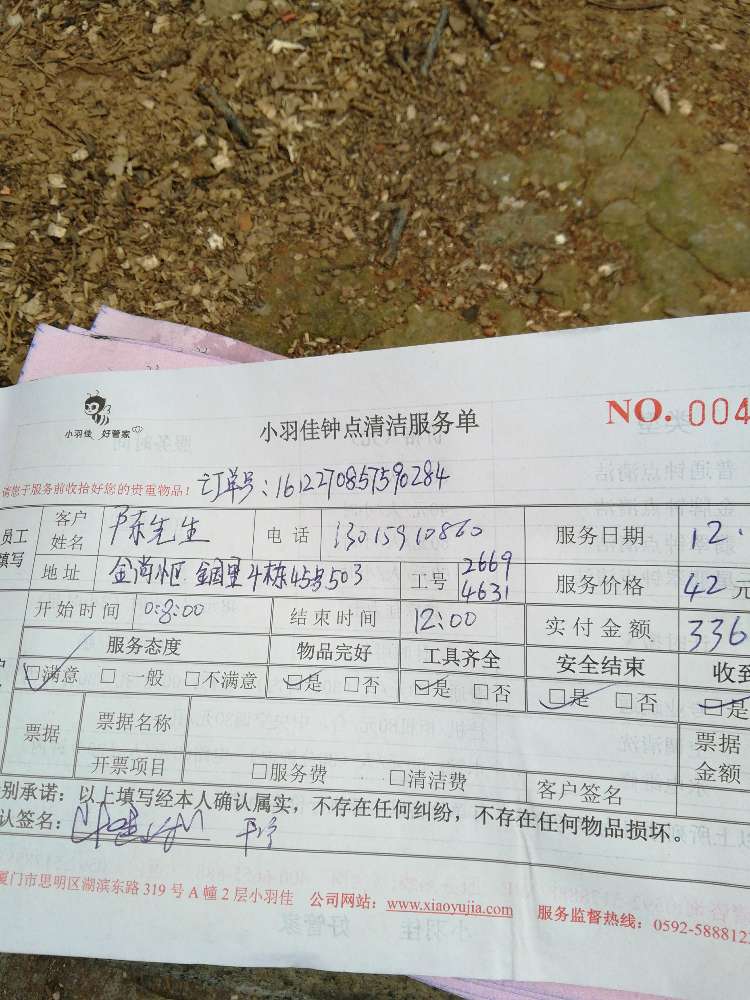 小羽佳 好管家
小羽佳钟点清洁服务单
NO. 004
请您于服务前收拾好您的贵重物品！
订单号：1612270857590284
员工填写 客户姓名 陈先生 电话 13015910860 服务日期 12.
地址 工号 2669 4631 服务价格 42元
开始时间 08:00 结束时间 12:00 实付金额 336
服务态度 物品完好 工具齐全 安全结束 收到
□满意 □一般 □不满意 □是 □否 □是 □否 □是 □否 □是
票据 票据名称 票据金额
开票项目 □服务费 □清洁费 客户签名
别承诺：以上填写经本人确认属实，不存在任何纠纷，不存在任何物品损坏。
认签名：
厦门市思明区湖滨东路 319 号 A 幢 2 层小羽佳 公司网站：www.xiaoyujia.com 服务监督热线：0592-588812